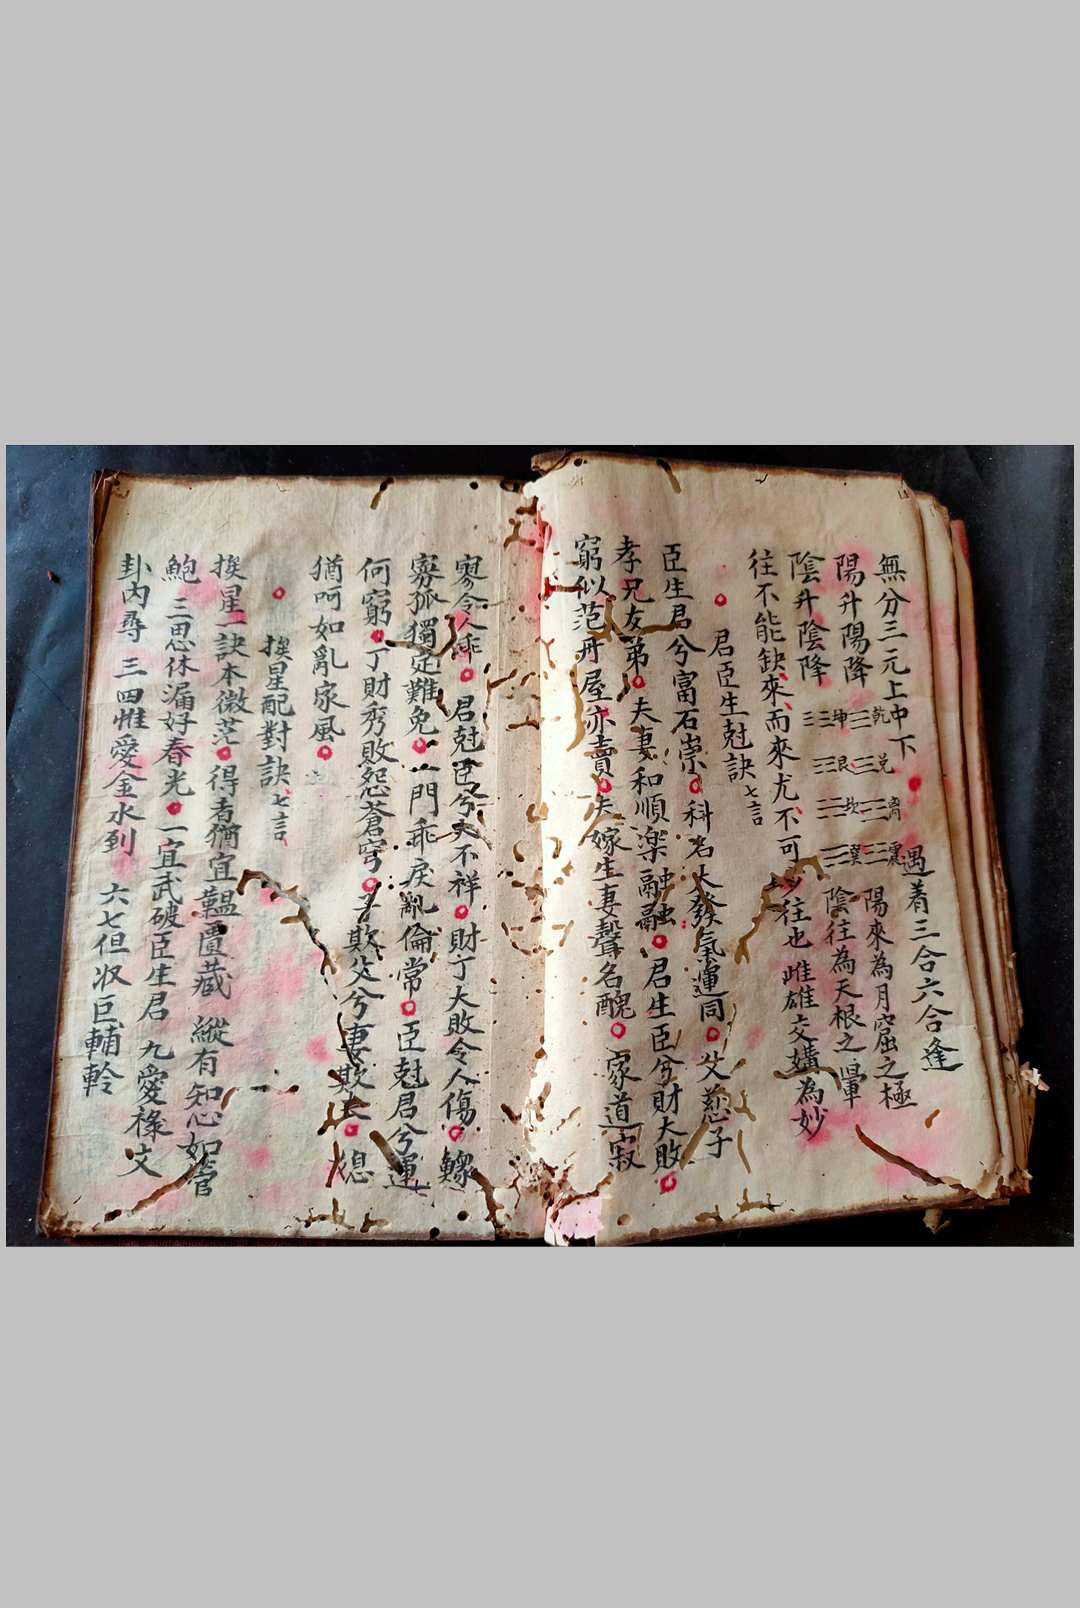 無分三元上中下　遇着三合六合逢
陽升陽降 乾 兌 離 震 陽來為月窟之極
陰升陰降 坤 艮 坎 巽 陰往為天根之暈
往不能缺來、而來尤不可少往也 雌雄交媾為妙
君臣生尅訣 七言
臣生君兮富石崇 科名大發氣運同 父慈子
孝兄友弟 夫妻和順樂融融 君生臣兮財大敗
窮似范丹屋亦賣 夫嫁生妻聲名醜 家道寂
寥令人乖 君尅臣兮夫不祥 財丁大敗令人傷 鰥
寡孤獨定難免 一門乖戾亂倫常 臣尅君兮運
何窮 丁財秀敗怨蒼穹 子欺父兮妻欺夫 總
猶呵如亂家風
挨星配對訣 七言
挨星一訣本微茫 得者猶宜韞匵藏 縱有知心如管
鮑 三思休漏好春光 一宜武破臣生君 九愛祿文
卦內尋 三四惟愛金水到 六七但収巨輔軨